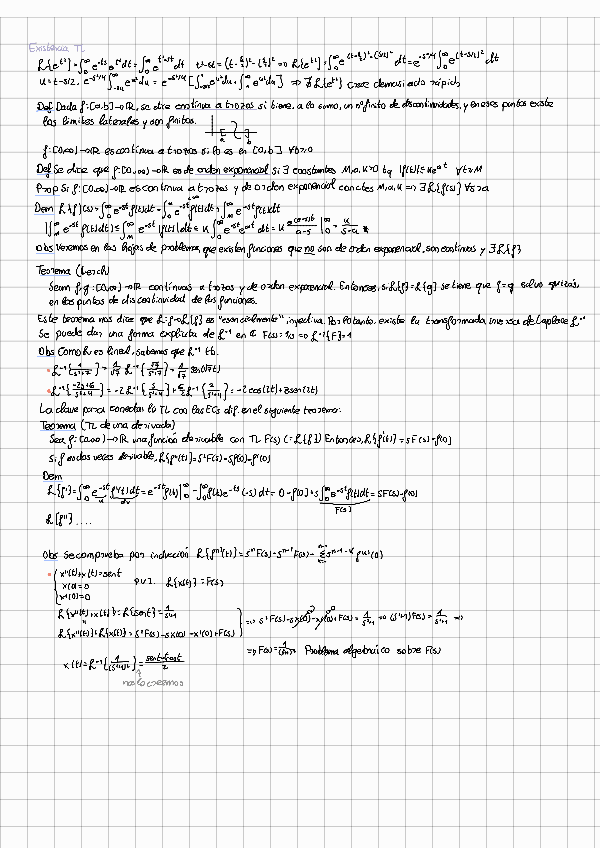 Existencia TL
L{e^{t²}} = ∫₀^∞ e^{-st} e^{t²} dt = ∫₀^∞ e^{t²-st} dt   t²-st = (t-s/2)²-(s/2)² => L{e^{t²}} = ∫₀^∞ e^{(t-s/2)²-(s/2)²} dt = e^{-s²/4} ∫₀^∞ e^{(t-s/2)²} dt
u = t-s/2, e^{-s²/4} ∫_{-s/2}^∞ e^{u²} du = e^{-s²/4} [ ∫ e^{u²} du + ∫₀^∞ e^{u²} du ] => ∄ L{e^{t²}} crece demasiado rápido
Def Dada f: [a,b] → R, se dice continua a trozos si tiene, a lo sumo, un nº finito de discontinuidades, y en esos puntos existe
los límites laterales y son finitos.
a b
f: [0,∞) → R es continua a trozos si lo es en [0,b] ∀b>0
Def Se dice que f: [0,∞) → R es de orden exponencial si ∃ constantes M,a,K>0 tq |f(t)| ≤ Ke^{at} ∀t≥M
Prop Si f: [0,∞) → R es continua a trozos y de orden exponencial con ctes M,a,K => ∃ L{f(s)} ∀s>a
Dem L{f}(s) = ∫₀^∞ e^{-st} f(t) dt = ∫₀^M e^{-st} f(t) dt + ∫_M^∞ e^{-st} f(t) dt
|∫_M^∞ e^{-st} f(t) dt| ≤ ∫_M^∞ e^{-st} |f(t)| dt ≤ K ∫₀^∞ e^{-st} e^{at} dt = K e^{(a-s)t}/(a-s) |₀^∞ = K/(s-a)
Obs Veremos en las hojas de problemas, que existen funciones que no son de orden exponencial, son continuas y ∃ L{f}
Teorema (Lerch)
Sean f,g: [0,∞) → R continuas a trozos y de orden exponencial. Entonces, si L{f} = L{g} se tiene que f=g salvo quizás,
en los puntos de discontinuidad de las funciones.
Este teorema nos dice que L: f → L{f} es "esencialmente" inyectiva. Por lo tanto, existe la transformada inversa de Laplace L⁻¹
Se puede dar una forma explícita de L⁻¹ en C F(s) = 1/s => L⁻¹{F} = 1
Obs Como L es lineal, sabemos que L⁻¹ tb.
• L⁻¹{1/(s²+7)} = 1/√7 L⁻¹{√7/(s²+7)} = 1/√7 sen(√7t)
• L⁻¹{(-2s+6)/(s²+4)} = -2 L⁻¹{s/(s²+4)} + 6/2 L⁻¹{2/(s²+4)} = -2cos(2t) + 3sen(2t)
La clave para conectar la TL con las ECs dif. en el siguiente teorema:
Teorema (TL de una derivada)
Sea f: [0,∞) → R una función derivable con TL F(s) (= L{f}) Entonces, L{f'(t)} = sF(s) - f(0)
Si f es dos veces derivable, L{f''(t)} = s²F(s) - sf(0) - f'(0)
Dem
L{f'} = ∫₀^∞ e^{-st} f'(t) dt = e^{-st} f(t)|₀^∞ - ∫₀^∞ f(t) e^{-st} (-s) dt = 0 - f(0) + s ∫₀^∞ e^{-st} f(t) dt = sF(s) - f(0)
u dv F(s)
L{f''} ....
Obs Se comprueba por inducción L{fⁿ)(t)} = sⁿF(s) - sⁿ⁻¹ F(s) - Σ sⁿ⁻¹⁻ᵏ f^{(k)}(0)
• { x''(t) + x(t) = sent
x(0) = 0   P.V.I.   L{x(t)} = F(s)
x'(0) = 0
L{x''(t) + x(t)} = L{sent} = 1/(s²+1)
L{x''(t)} + L{x(t)} = s²F(s) - sx(0) - x'(0) + F(s)
=> s²F(s) - sx(0) - x'(0) + F(s) = 1/(s²+1) => (s²+1)F(s) = 1/(s²+1) =>
=> F(s) = 1/(s²+1)² Problema algebraico sobre F(s)
x(t) = L⁻¹{1/(s²+1)²} = (sent - tcost)/2
nos lo creemos